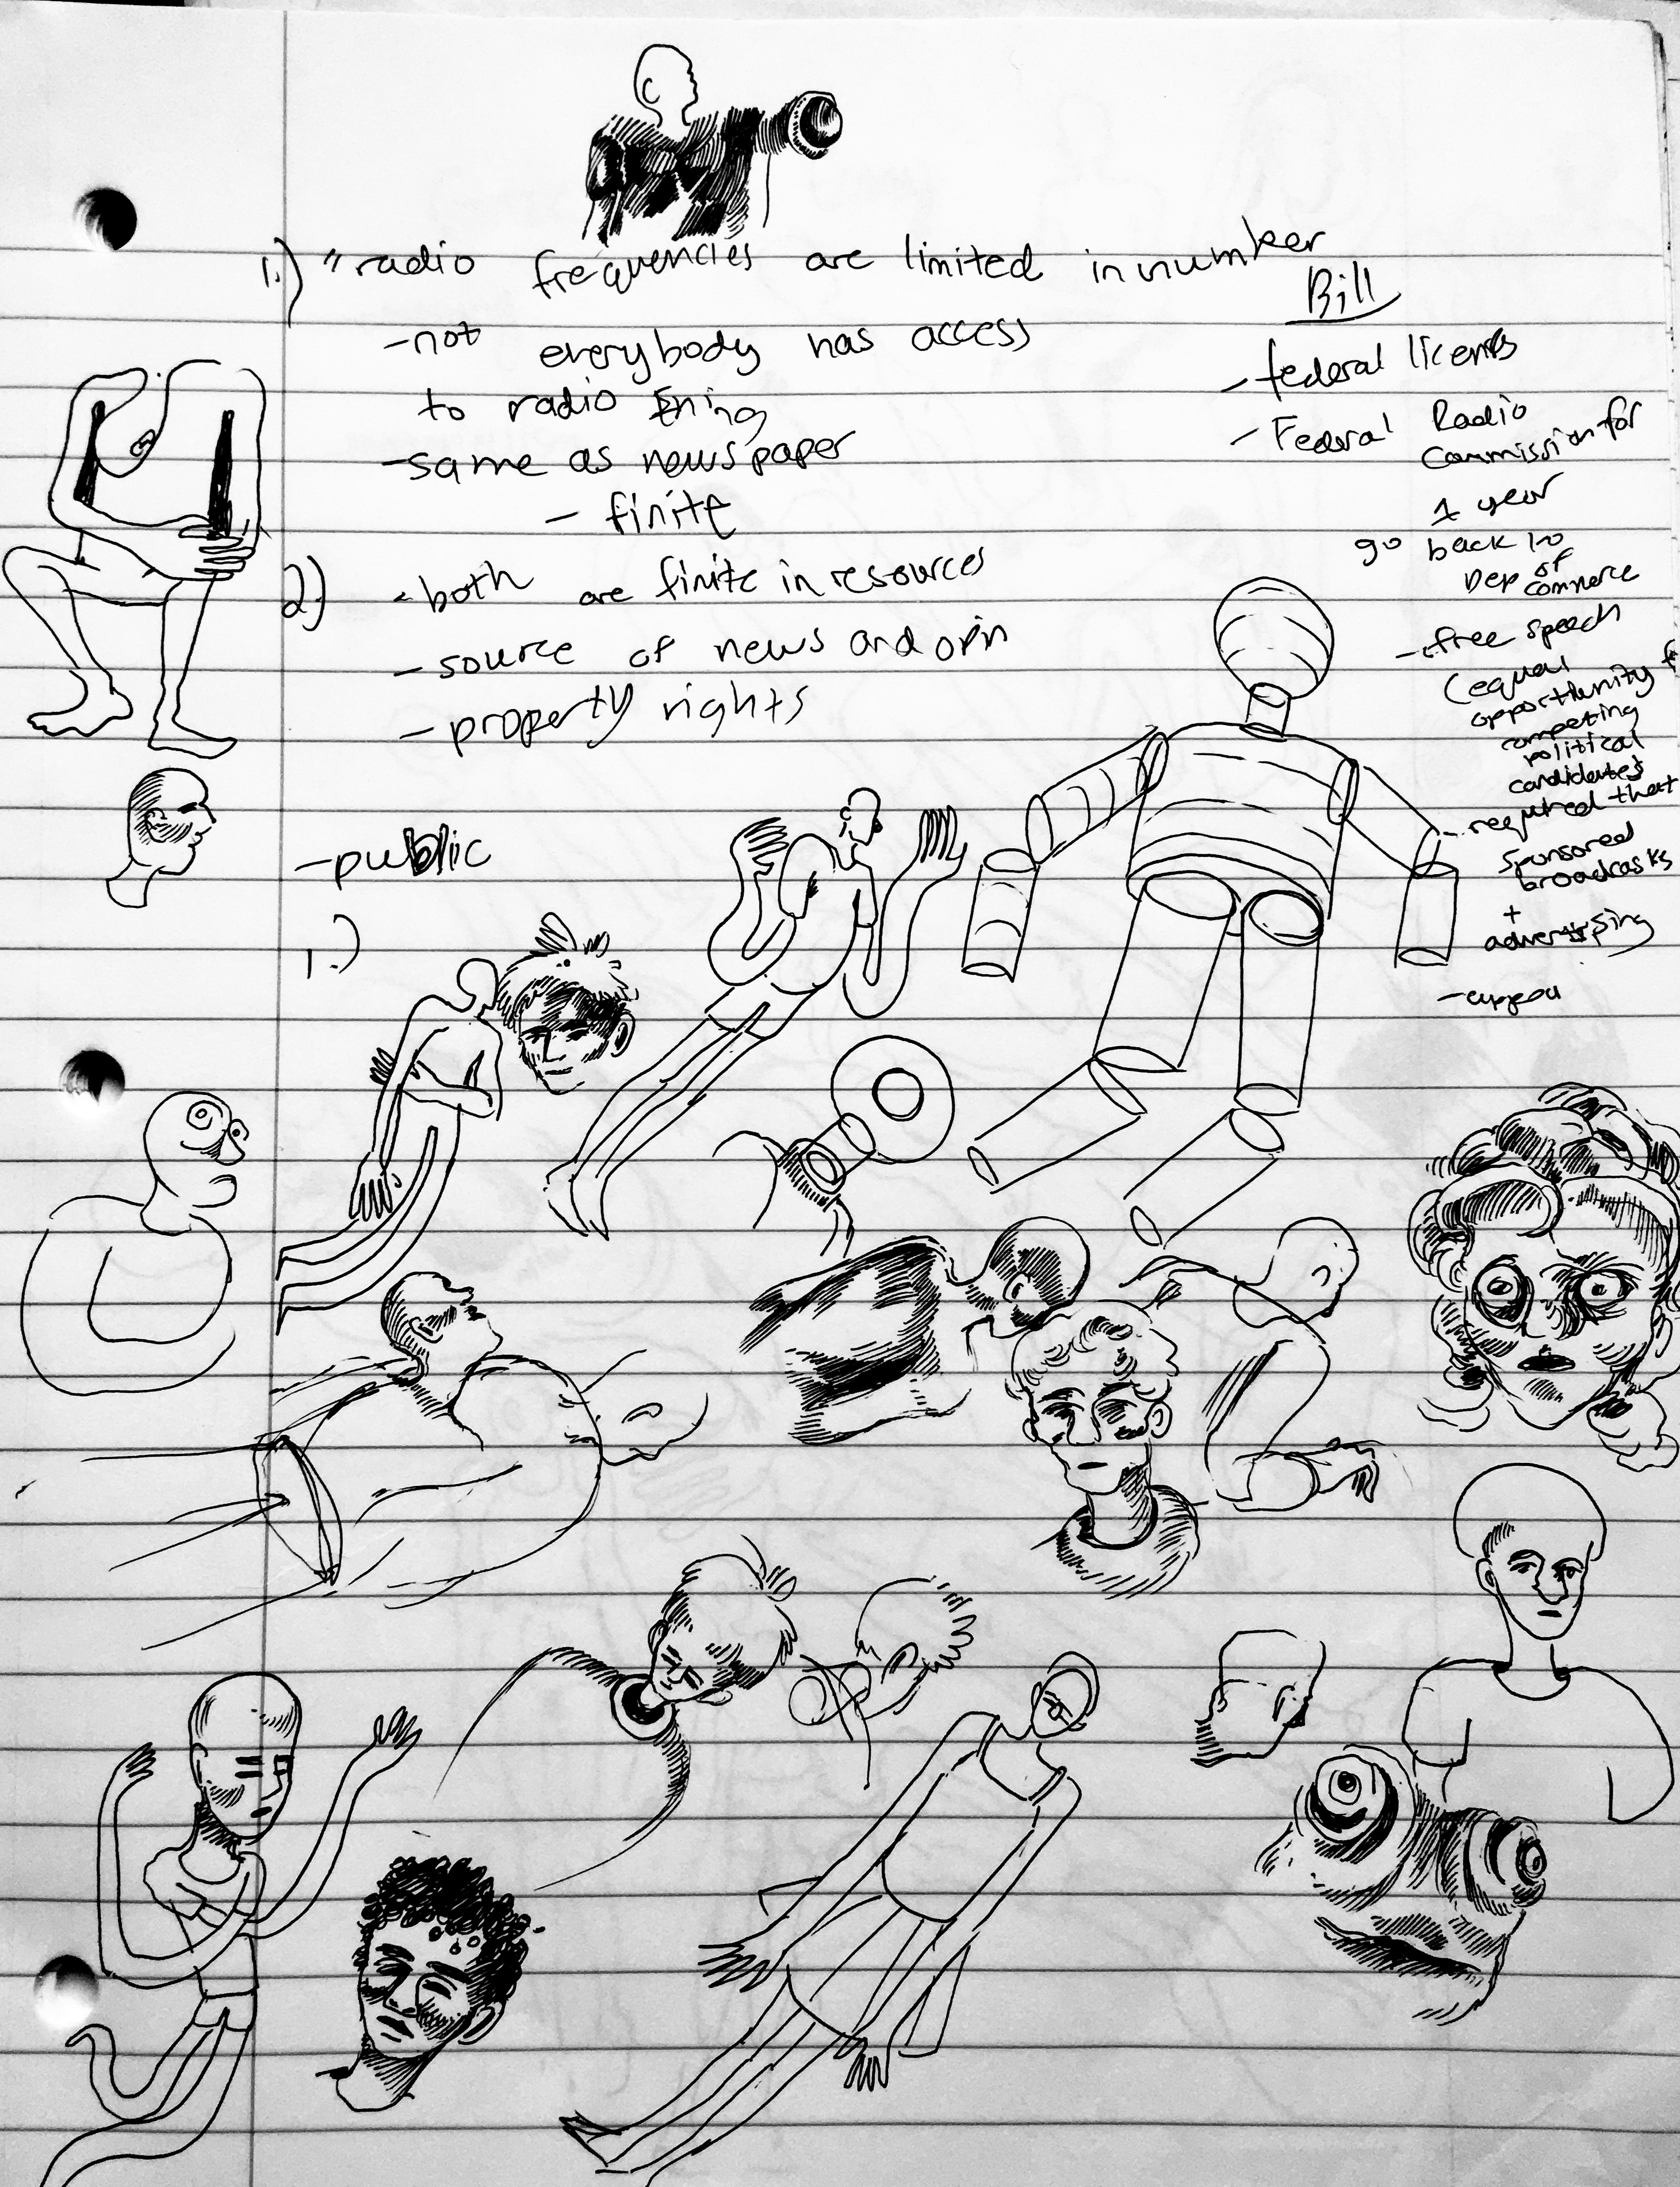 1.) "radio frequencies are limited in number
-not everybody has access
to radio
-same as newspaper
- finite
2.) - both are finite in resources
- source of news and opin
- property rights
-public
1.)
Bill
- federal licens
- Federal Radio
Commission for
1 year
go back to
Dep of
commerce
- free speech
(equal
opportunity f
competing
political
candidates
- required that
sponsored
broadcasts
+
advertising